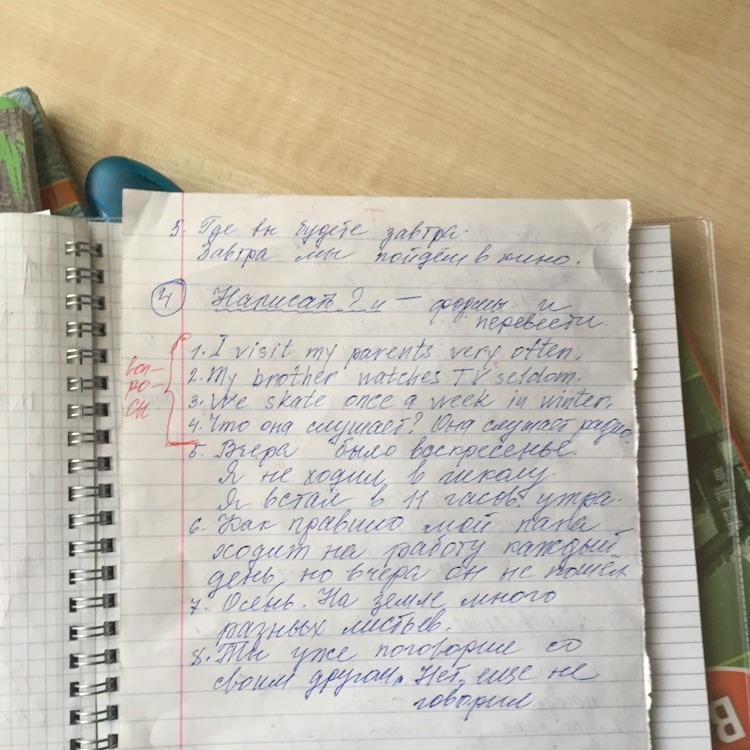 5. Где вы будете завтра.
Завтра мы пойдем в кино.
4 Написать ? и — формы и
перевести.
воп-
ро-
сы
1. I visit my parents very often.
2. My brother watches TV seldom.
3. We skate once a week in winter.
4. Что она слушает? Она слушает радио.
5. Вчера было воскресенье.
Я не ходил в школу.
Я встал в 11 часов утра.
6. Как правило мой папа
ходит на работу каждый
день, но вчера он не пошел
7. Осень. На земле много
разных листьев.
8. Ты уже поговорил со
своим другом. Нет, еще не
говорил.
В